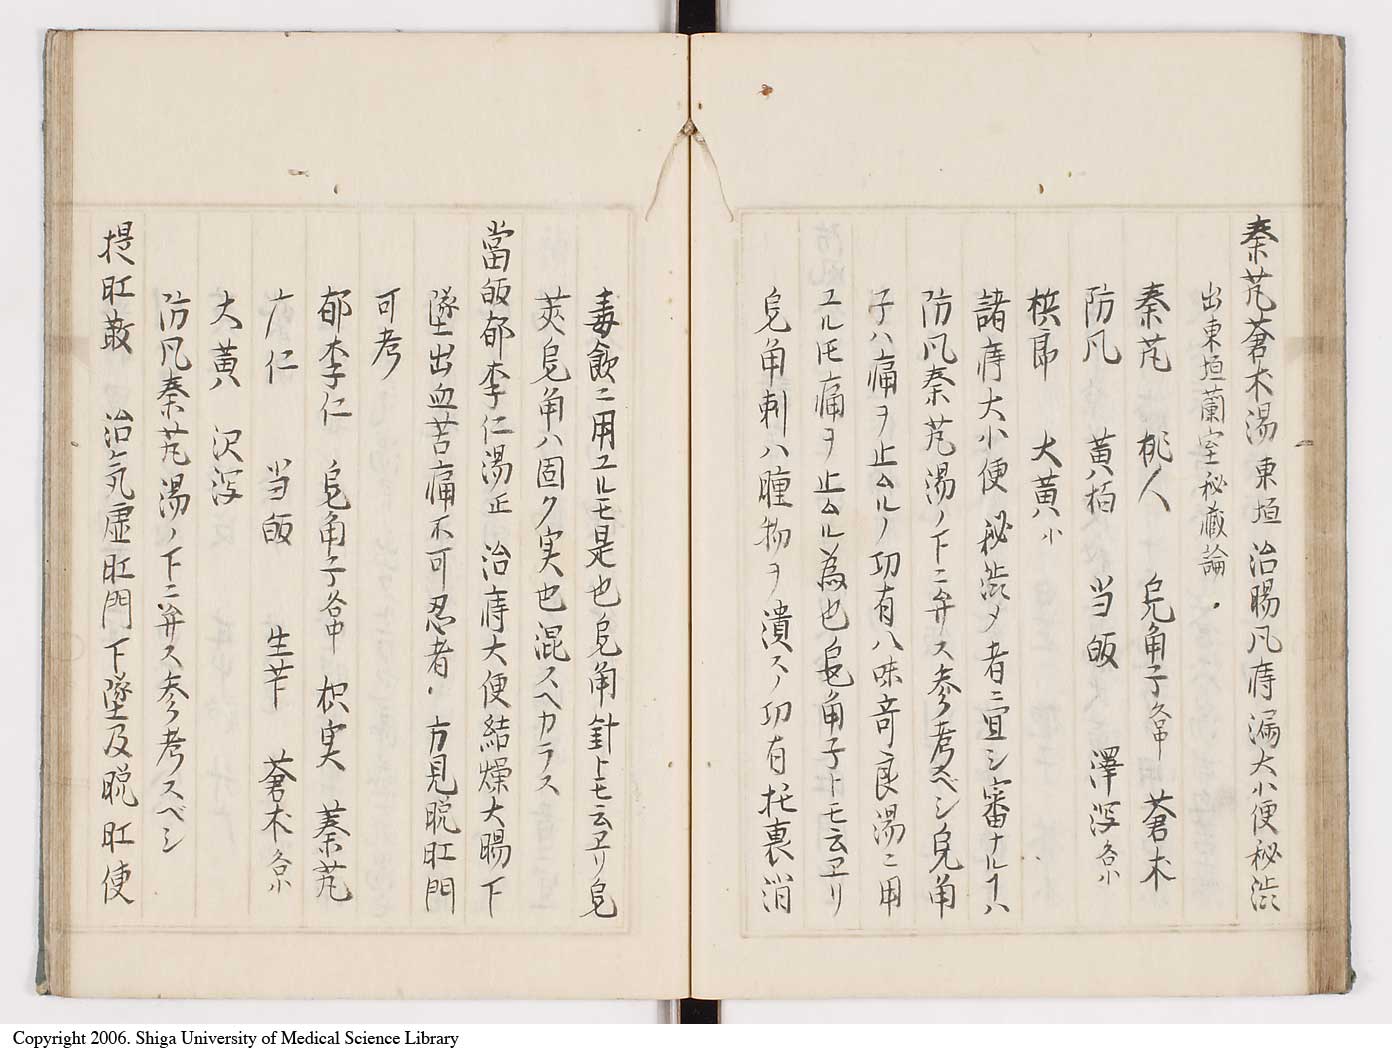 秦艽蒼朮湯 東垣 治腸凡痔漏大小便秘渋
出東垣蘭室秘蔵論.
秦艽 桃人 皂角子各中 蒼朮
防凡 黄栢 当皈 澤泻各小
梹郎 大黄小
諸痔大小便秘渋メ者ニ宜シ審ナルヿハ
防凡秦艽湯ノ下ニ弁ス参考スベシ皂角
子ハ痛ヲ止ムルノ功有八味竒良湯ニ用
ユルモ痛ヲ止ムル為也皂角子トモ云ヱリ
皂角刺ハ腫物ヲ潰スノ功有托裏消
毒飲ニ用ユルモ是也皂角針トモ云ヱリ皂
莢皂角ハ固ク実也混スヘカラス
當皈郁李仁湯 正 治痔大便結燥大腸下
墜出血苦痛不可忍者.方見脱肛門
可考
郁李仁 皂角子各中 枳実 秦艽
广仁 当皈 生芐 蒼朮各小
大黄 沢泻
防凡秦艽湯ノ下ニ弁ス参考スベシ
提肛散 治気虚肛門下墜及脱肛便
Copyright 2006. Shiga University of Medical Science Library